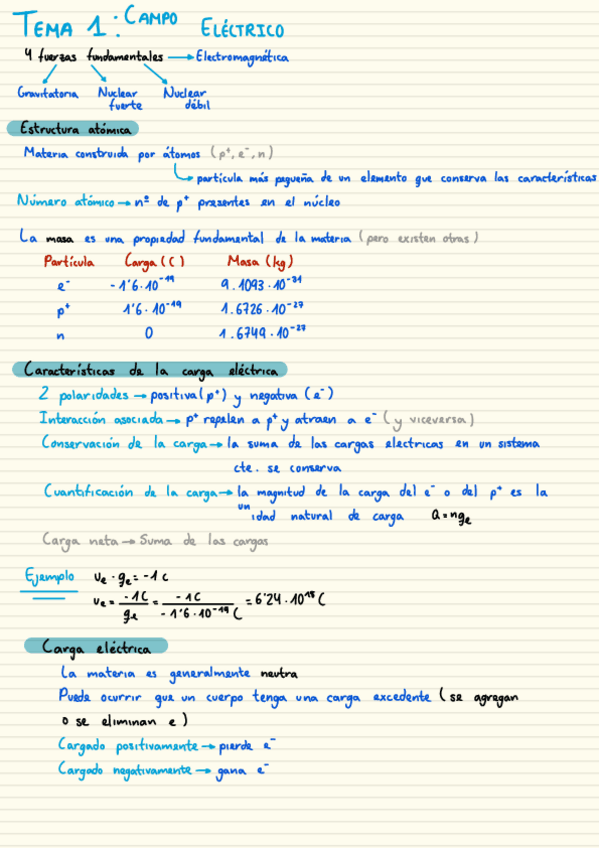 TEMA 1: CAMPO ELÉCTRICO
4 fuerzas fundamentales → Electromagnética
Gravitatoria Nuclear fuerte Nuclear débil
Estructura atómica
Materia construida por átomos (p⁺, e⁻, n)
partícula más pequeña de un elemento que conserva las características
Número atómico → nº de p⁺ presentes en el núcleo
La masa es una propiedad fundamental de la materia (pero existen otras)
Partícula Carga (C) Masa (kg)
e⁻ -1'6·10⁻¹⁹ 9.1093·10⁻³¹
p⁺ 1'6·10⁻¹⁹ 1.6726·10⁻²⁷
n 0 1.6749·10⁻²⁷
Características de la carga eléctrica
2 polaridades → positiva (p⁺) y negativa (e⁻)
Interacción asociada → p⁺ repelen a p⁺ y atraen a e⁻ (y viceversa)
Conservación de la carga → la suma de las cargas electricas en un sistema
cte. se conserva
Cuantificación de la carga → la magnitud de la carga del e⁻ o del p⁺ es la
unidad natural de carga Q=nqe
Carga neta → Suma de las cargas
Ejemplo νe · qe = -1 C
νe = -1C / qe = -1C / -1'6·10⁻¹⁹ C = 6'24·10¹⁸ C
Carga eléctrica
La materia es generalmente neutra
Puede ocurrir que un cuerpo tenga una carga excedente (se agregan
o se eliminan e)
Cargado positivamente → pierde e⁻
Cargado negativamente → gana e⁻